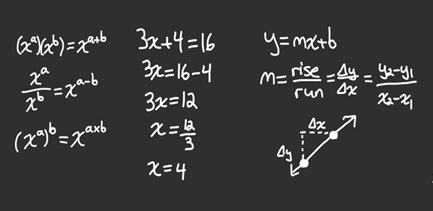 (xᵃ)(xᵇ)=xᵃ⁺ᵇ
xᵃ/xᵇ=xᵃ⁻ᵇ
(xᵃ)ᵇ=xᵃˣᵇ
3x+4=16
3x=16-4
3x=12
x=12/3
x=4
y=mx+b
m=rise/run=Δy/Δx=y₂-y₁/x₂-x₁
Δx
Δy